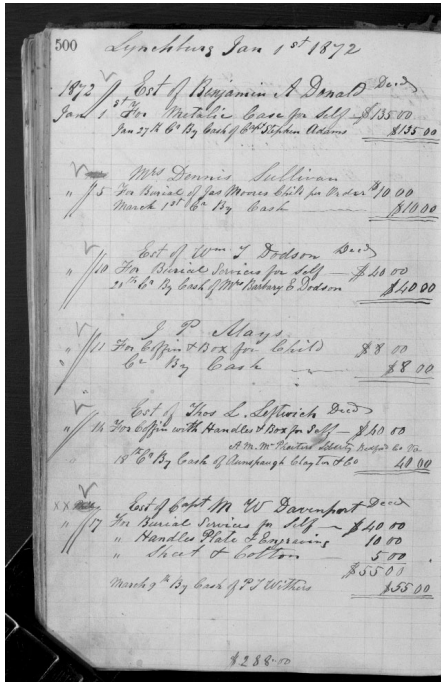 500 Lynchburg Jan 1st 1872
1872 Est of Benjamin A Donald Decd
Jan 1st For Metalic Case for Self — $135 00
Jan 27th Cr By Cash of Capt Stephen Adams $135 00
Mrs Dennis Sullivan
" 5 For Burial of Jas Moores Child per Order $10 00
March 1st Cr By Cash — $10 00
Est of Wm T Dodson Decd
" 10 For Burial Services for Self — $40 00
20th Cr By Cash of Mrs Barbary E Dodson $40 00
J P Mays
" 11 For Coffin & Box for Child $8 00
" Cr By Cash — $8 00
"
Est of Thos L. Leftwich Decd
" 14 For Coffin with Handles & Box for Self — $40 00
A. M. Liberty Bedford Co Va
18th Cr By Cash of Clayton & Co 40 00
xx Est of Capt M W Davenport Decd
" 17 For Burial Services for Self — $40 00
" Handles Plate & Engraving 10 00
" Sheet & Cotton — 5 00
$55 00
March 9th By Cash of P T Withers $55 00
$288.00